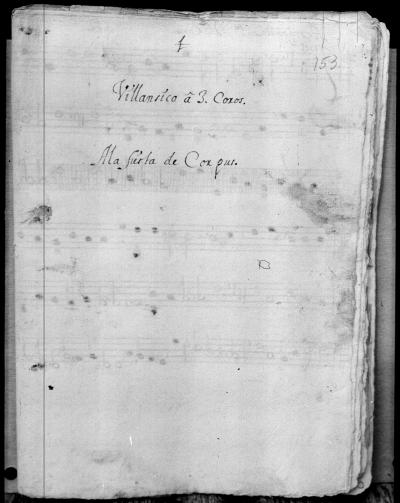 153
Villansico â 3. Coros.
Ala fiesta de Corpus.